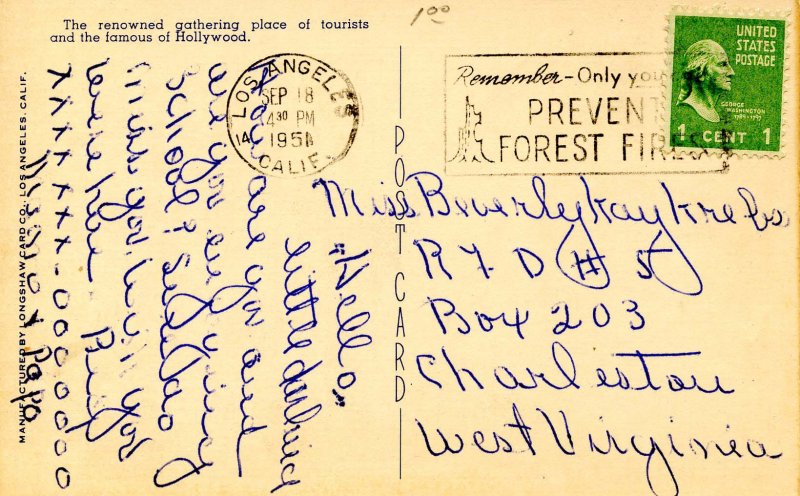 The renowned gathering place of tourists
and the famous of Hollywood.
1 00
LOS ANGELES
SEP 18
4 30 PM
1951
14
CALIF.
Remember-Only you
PREVENT
FOREST FIRES
UNITED
STATES
POSTAGE
GEORGE
WASHINGTON
1789-1797
1 CENT 1
POST CARD
MANUFACTURED BY LONGSHAW CARD CO., LOS ANGELES, CALIF.
"Hello"
little darling
How are you and
are you enjoying
School?
miss you wish you
were here.
xxxxxxx-ooooooo
& Papo
Miss Beverly Kay Krebs
R F D # 5
Box 203
Charleston
West Virginia